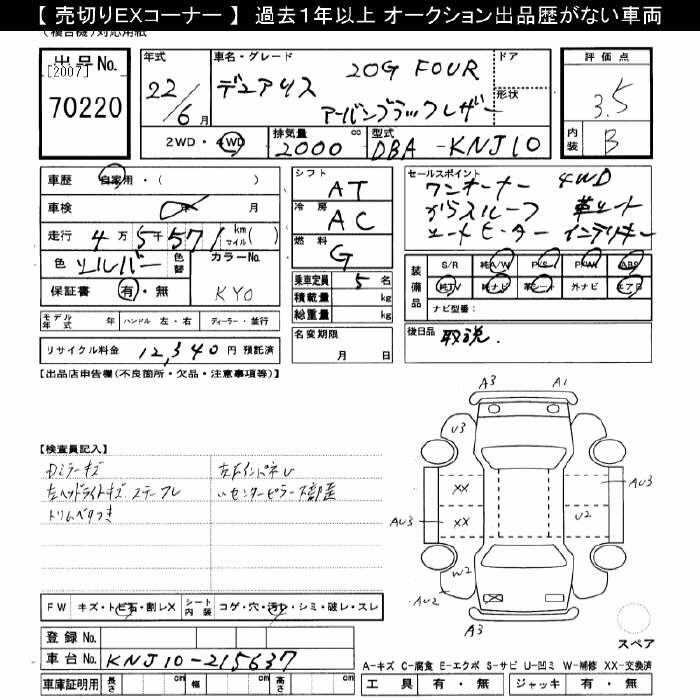 【 売切りEXコーナー 】 過去1年以上 オークション出品歴がない車両
(複合機)対応用紙
出品No.
[2007]
70220
年式
22/6月
車名・グレード
デュアリス 20G FOUR
アーバンブラックレザー
ドア
形状
評価点
3.5
内装
B
2WD・4WD
排気量
2000 cc
型式
DBA-KNJ10
車歴 自家用・( )
車検 年 月
走行 4万5千571 km マイル( )
色 シルバー 色替
カラーNo.
KY0
保証書 有・無
シフト
AT
冷房
AC
燃料
G
乗車定員 5名
積載量 kg
総重量 kg
セールスポイント
ワンオーナー 4WD
ガラスルーフ 革シート
シートヒーター インテリキー
装備品
S/R 純A/W P/S P/W ABS
純TV 純ナビ 革シート 外ナビ エアB
ナビ型番:
モデル年式 年 ハンドル 左・右 ディーラー・並行
リサイクル料金 12,340円 預託済
名変期限
月 日
後日品 取説.
【出品店申告欄(不良箇所・欠品・注意事項等)】
【検査員記入】
Dミラーキズ
左ヘッドライトキズ ステーフレ
トリムベタつき
左Fインパネレ
〃センターピラー下部歪
A3 A1
U3
AU3
XX
XX
AU3
U2
W2
AU2
A3
スペア
FW キズ・トビ石・割レX
シート内装 コゲ・穴・汚レ・シミ・破レ・スレ
登録No.
車台No. KNJ10-215637
車庫証明用 長さ cm 幅 cm 高さ cm
A-キズ C-腐食 E-エクボ S-サビ U-凹ミ W-補修 XX-交換済
工具 有・無 ジャッキ 有・無